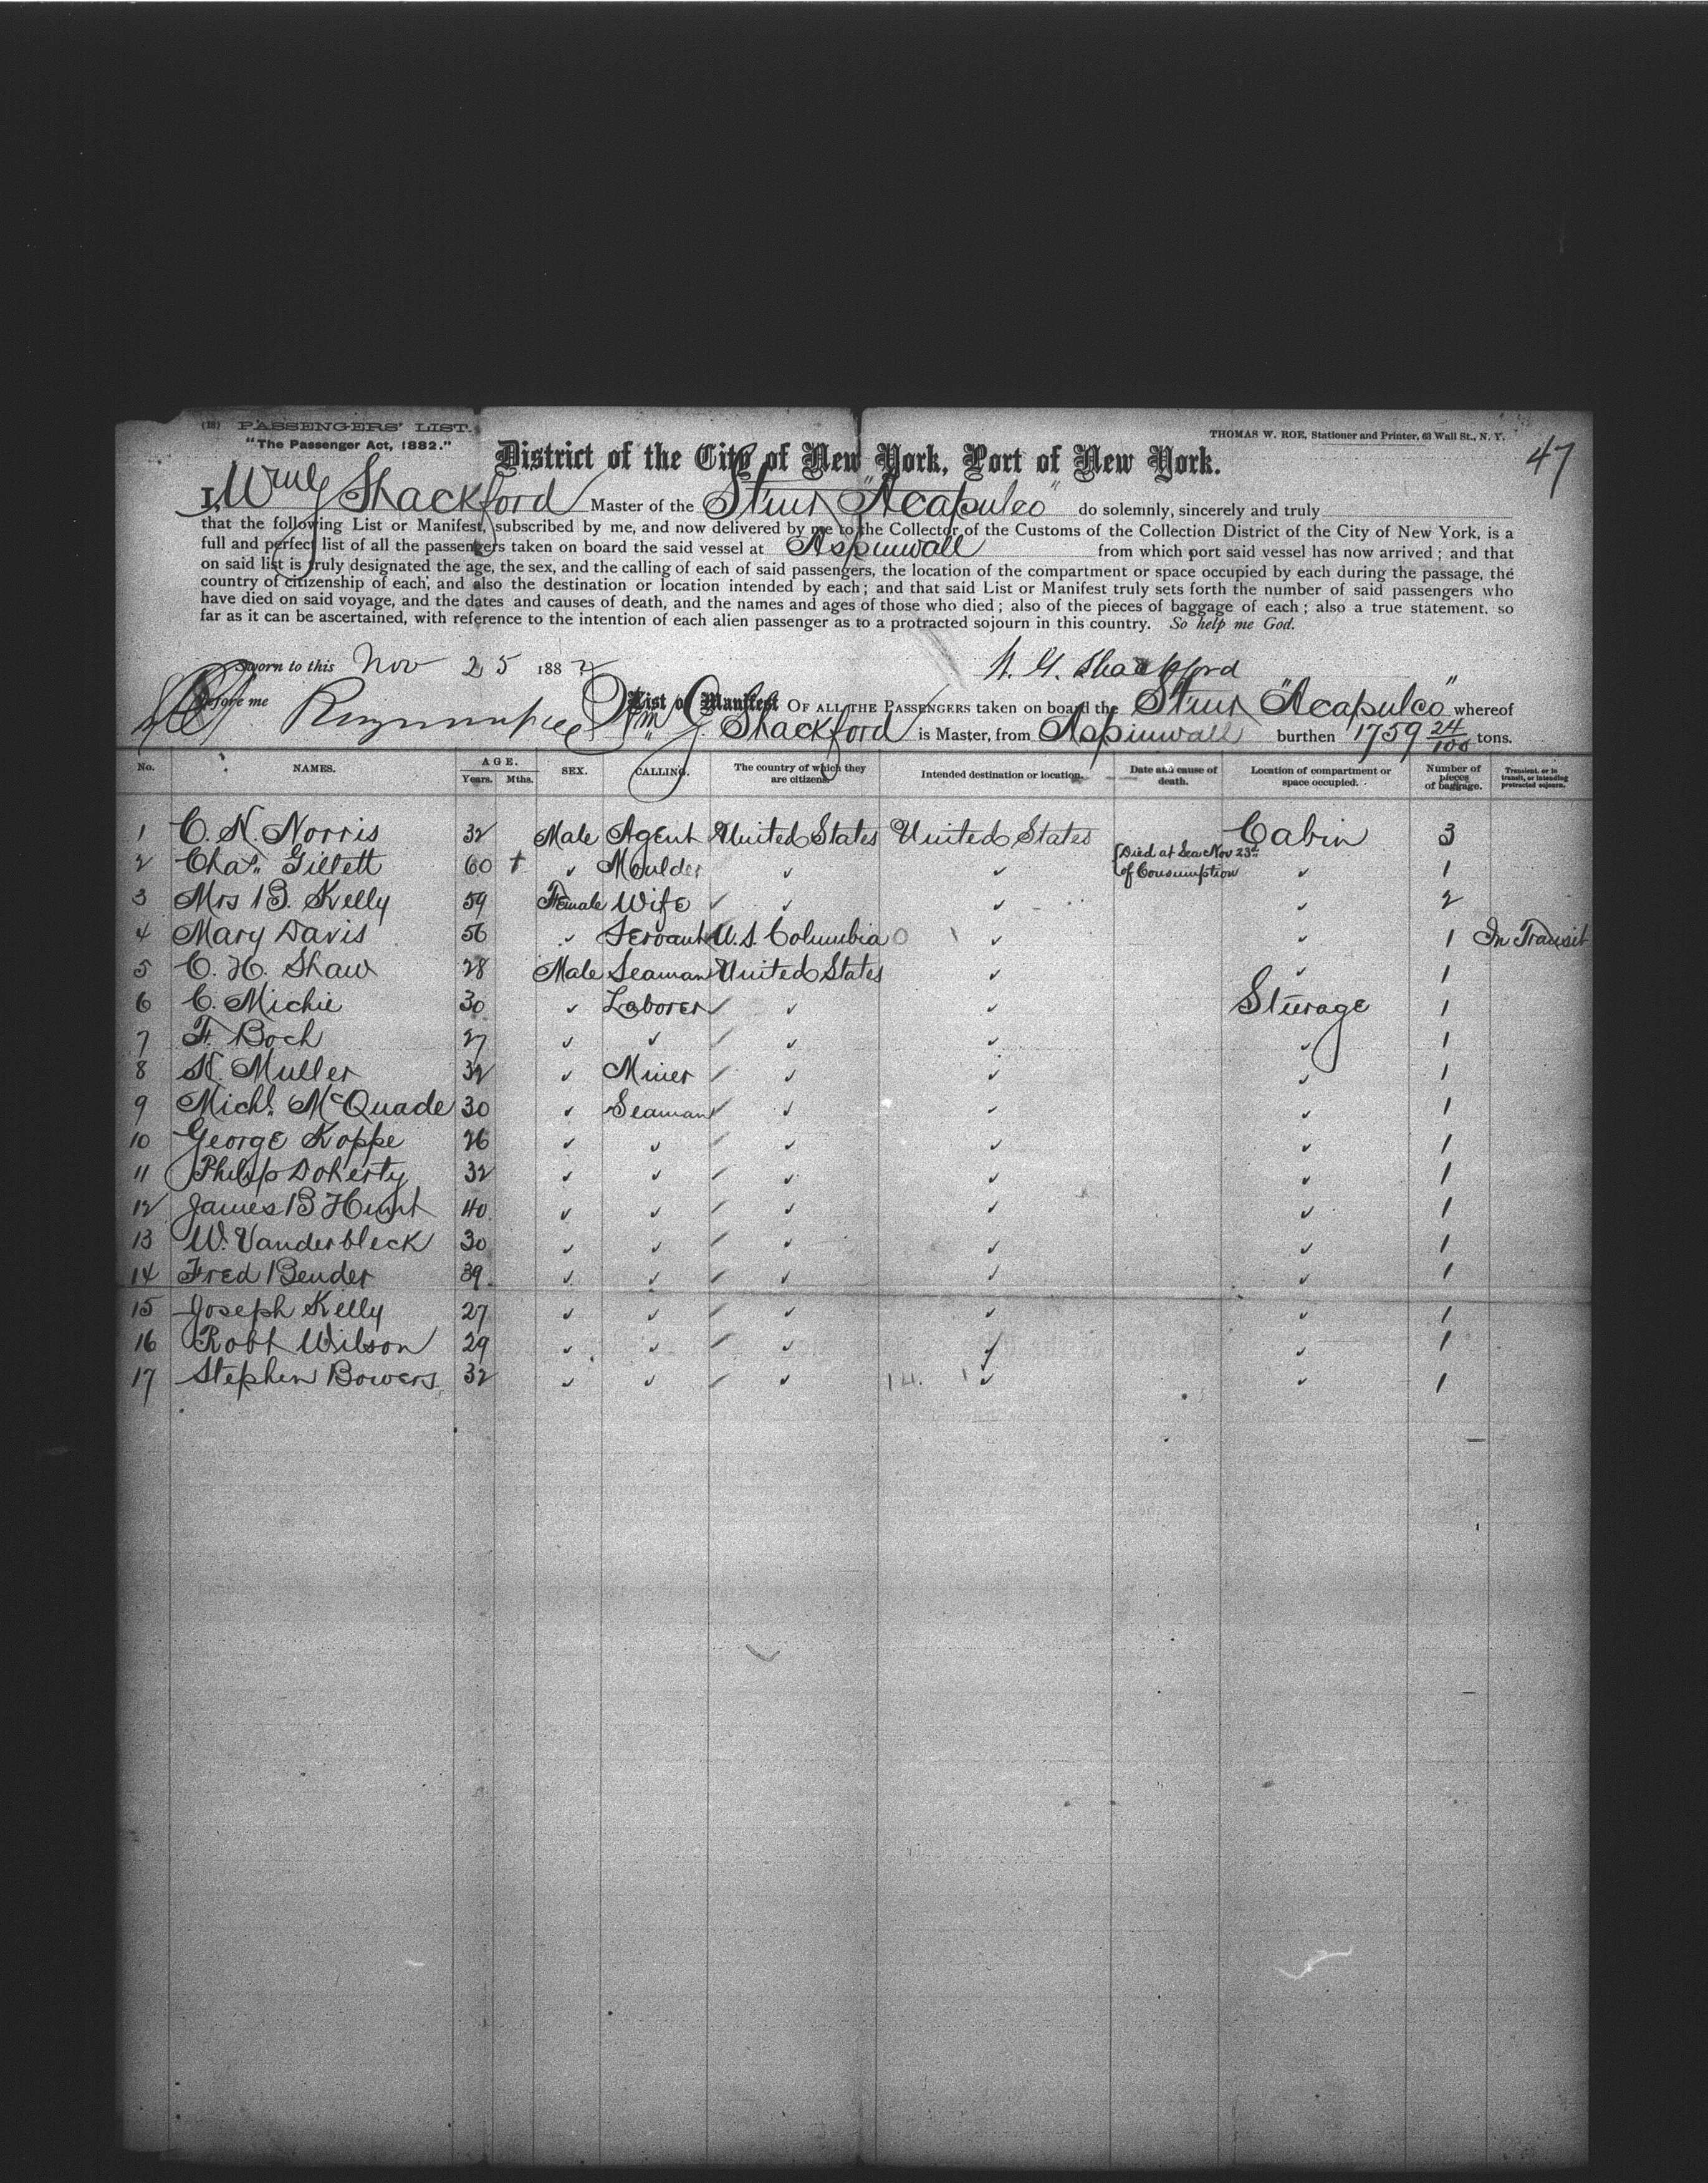 (18) PASSENGERS' LIST.
"The Passenger Act, 1882."
THOMAS W. ROE, Stationer and Printer, 63 Wall St., N. Y.
47
District of the City of New York, Port of New York.
I, Wm G Shackford Master of the Stmr "Acapulco" do solemnly, sincerely and truly
that the following List or Manifest, subscribed by me, and now delivered by me to the Collector of the Customs of the Collection District of the City of New York, is a
full and perfect list of all the passengers taken on board the said vessel at Aspinwall from which port said vessel has now arrived; and that
on said list is truly designated the age, the sex, and the calling of each of said passengers, the location of the compartment or space occupied by each during the passage, the
country of citizenship of each, and also the destination or location intended by each; and that said List or Manifest truly sets forth the number of said passengers who
have died on said voyage, and the dates and causes of death, and the names and ages of those who died; also of the pieces of baggage of each; also a true statement, so
far as it can be ascertained, with reference to the intention of each alien passenger as to a protracted sojourn in this country. So help me God.
Sworn to this Nov 25 1882 W. G. Shackford
Before me
List or Manifest OF ALL THE PASSENGERS taken on board the Stmr "Acapulco" whereof
Wm G. Shackford is Master, from Aspinwall burthen 1759 24/100 tons.
No. NAMES. AGE. Years. Mths. SEX. CALLING. The country of which they are citizens. Intended destination or location. Date and cause of death. Location of compartment or space occupied. Number of pieces of baggage. Transient, or in transit, or intending protracted sojourn.
1 C. N. Norris 32 Male Agent United States United States Cabin 3
2 Chas. Gillett 60 + ✓ Moulder ✓ ✓ Died at Sea Nov 23d of Consumption ✓ 1
3 Mrs B. Kelly 59 Female Wife ✓ ✓ ✓ 2
4 Mary Davis 56 ✓ Servant U.S. Columbia 0 ✓ ✓ 1 In Transit
5 C. H. Shaw 28 Male Seaman United States ✓ ✓ 1
6 C. Michie 30 ✓ Laborer ✓ ✓ Steerage 1
7 F. Boch 27 ✓ ✓ ✓ ✓ ✓ 1
8 K. Muller 32 ✓ Miner ✓ ✓ ✓ 1
9 Michl. McQuade 30 ✓ Seaman ✓ ✓ ✓ 1
10 George Koppe 26 ✓ ✓ ✓ ✓ ✓ 1
11 Philip Doherty 32 ✓ ✓ ✓ ✓ ✓ 1
12 James B Hunt 40 ✓ ✓ ✓ ✓ ✓ 1
13 W. Vanderbleck 30 ✓ ✓ ✓ ✓ ✓ 1
14 Fred Bender 39 ✓ ✓ ✓ ✓ ✓ 1
15 Joseph Kelly 27 ✓ ✓ ✓ ✓ ✓ 1
16 Robt Wilson 29 ✓ ✓ ✓ ✓ ✓ 1
17 Stephen Bowers 32 ✓ ✓ ✓ 14. 1 ✓ ✓ 1